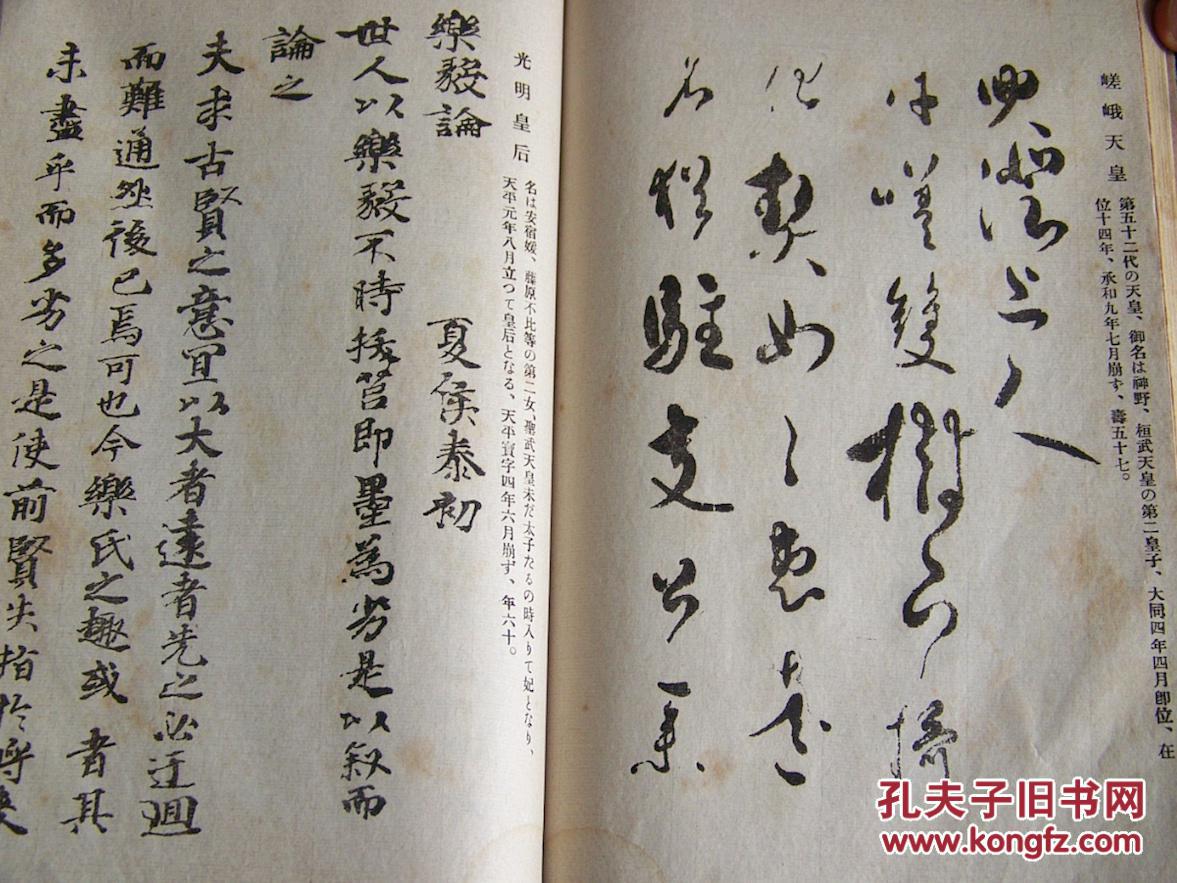 嵯峨天皇
第五十二代の天皇、御名は神野、桓武天皇の第二皇子、大同四年四月卽位、在
位十四年、承和九年七月崩ず、壽五十七。
哭澄上人
吁嗟雙樹下攝
化契如々惠遠
名猶駐支公業
光明皇后
名は安宿媛、藤原不比等の第二女、聖武天皇未だ太子たるの時入りて妃となり、
天平元年八月立つて皇后となる、天平寳字四年六月崩ず、年六十。
樂毅論 夏侯泰初
世人以樂毅不時拔莒即墨為劣是以叙而
論之
夫求古賢之意宜以大者遠者先之必迂迴
而難通然後已焉可也今樂氏之趣或者其
未盡乎而多劣之是使前賢失指於將來
孔夫子旧书网
www.kongfz.com